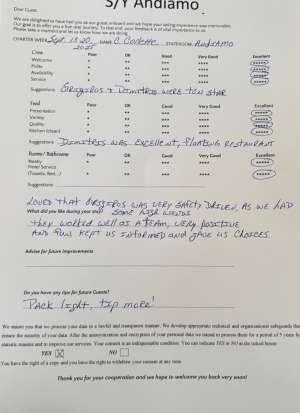 S/Y Andiamo
Dear Guest,
We are delighted to have had you as our guest onboard and we hope your sailing experience was memorable.
Our goal is to offer you a five star journey. To that end, your feedback is of vital importance to us.
Please take a moment and let us know how we are doing.
CHARTER WEEK Sept. 13-20, 2025 NAME C. STATEROOM ANDIAMO
Crew Poor OK Good Very Good Excellent
Welcome * ** *** **** *****
Polite * ** *** **** *****
Availability * ** *** **** *****
Service * ** *** **** *****
Suggestions GRIGIRIOS & DEMITRIS WERE TEN STAR
Food Poor OK Good Very Good Excellent
Presentation * ** *** **** *****
Variety * ** *** **** *****
Quality * ** *** **** *****
Kitchen (clean) * ** *** **** *****
Suggestions DEMITRIS WAS EXCELLENT, FLOATING RESTAURANT
Rooms/ Bathrooms Poor OK Good Very Good Excellent
Neatly * ** *** **** *****
Hotel Service
(Towels, Bed...) * ** *** **** *****
Suggestions
LOVED THAT GRIGIRIOS WAS VERY SAFETY DRIVEN, AS WE HAD
What did you like during your stay? SOME HIGH WINDS
THEY WORKED WELL AS A TEAM, VERY POSITIVE
AND FUN. KEPT US INFORMED AND GAVE US CHOICES.
Advise for future improvements
Do you have any tips for future Guests?
PACK light, tip more!
We assure you that we process your data in a lawful and transparent manner. We develop appropriate technical and organizational safeguards tha
ensure the security of your data. After the anonymization and encryption of your personal data we intend to process them for a period of 5 years fo
statistic reasons and to improve our services. Your consent is an indispensable condition. You can indicate YES or NO in the ticked boxes
YES NO
You have the right of a copy and you have the right to withdraw your consent at any time.
Thank you for your cooperation and we hope to welcome you back very soon!